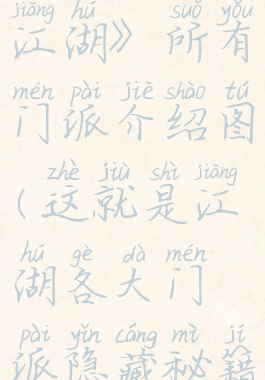 jiāng hú suǒ yǒu
江湖》 所有
mén pài jiè shào tú
门派介绍图
zhè jiù shì jiāng
(这就是江
hú gè dà mén
湖各大门
pài yǐn cáng mì jí
派隐藏秘籍